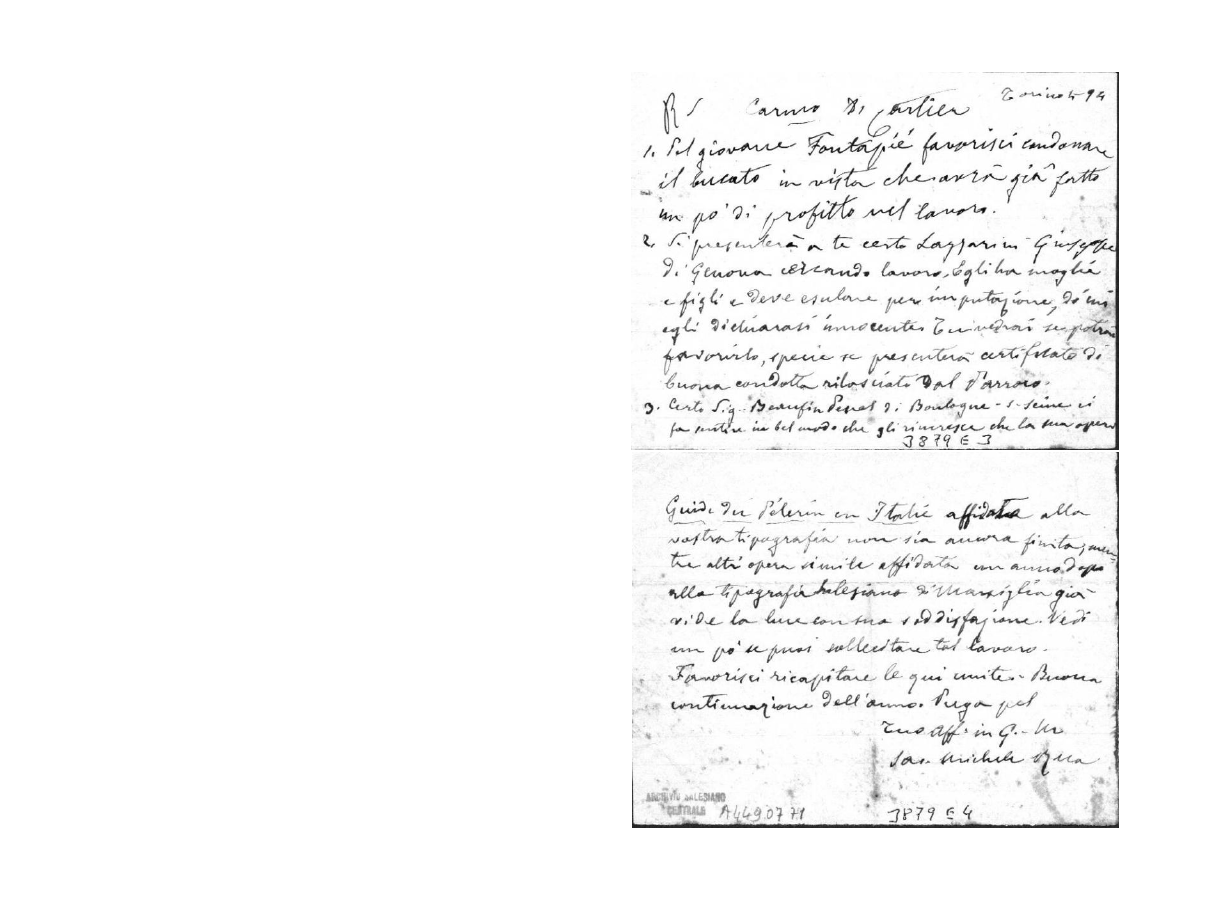 Torino 4 94
Carmo D. Cartier
1. Pel giovane Fontapié favorisci condonare
il bucato in vista che avrà già fatto
un po' di profitto nel lavoro.
2. Si presenterà a te certo Lazzarini Giuseppe
di Genova cercando lavoro. Egli ha moglie
e figli e deve esulare per imputazione, di cui
egli dichiarasi innocente. Tu vedrai se potrai
favorirlo, specie se presenterà certificato di
buona condotta rilasciato dal Parroco.
3. Certo Sig. di Boulogne-s-Seine ci
fa sentire in bel modo che gli rincresce che la sua opera
3879 E 3
Guide du Pélerin en Italie affidata alla
vostra tipografia non sia ancora finita, men-
tre altr'opera simile affidata un anno dopo
alla tipografia Salesiana di Marsiglia già
vide la luce con sua soddisfazione. Vedi
un po' se puoi sollecitare tal lavoro.
Favorisci ricapitare le qui unite. Buona
continuazione dell'anno. Prega pel
Tuo Aff. in G. M
Sac. Michele Rua
ARCHIVIO SALESIANO
CENTRALE
A4490771
3879 E 4